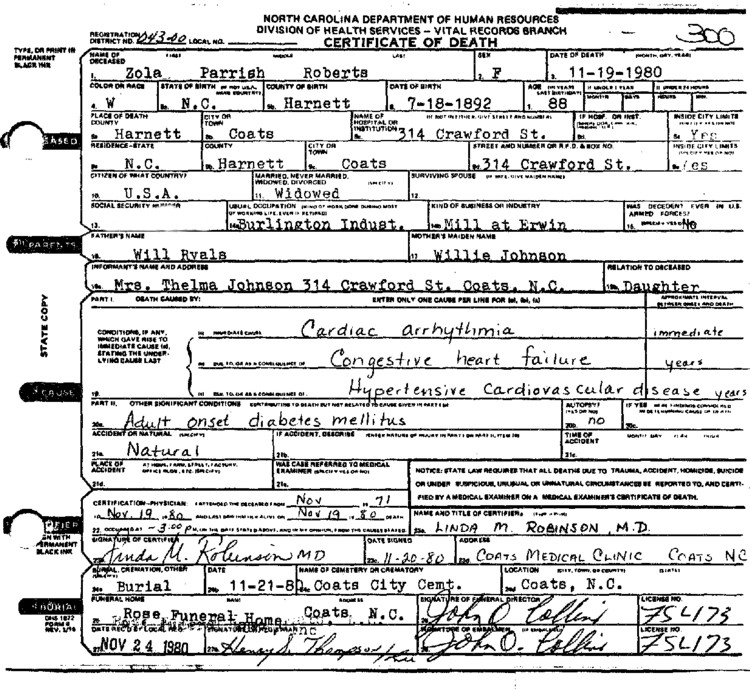 NORTH CAROLINA DEPARTMENT OF HUMAN RESOURCES
DIVISION OF HEALTH SERVICES – VITAL RECORDS BRANCH
CERTIFICATE OF DEATH
300
REGISTRATION DISTRICT NO. 043-00 LOCAL NO.
TYPE, OR PRINT IN PERMANENT BLACK INK
NAME OF DECEASED FIRST MIDDLE LAST SEX DATE OF DEATH (MONTH, DAY, YEAR)
1. Zola Parrish Roberts 2. F 3. 11-19-1980
COLOR OR RACE STATE OF BIRTH COUNTY OF BIRTH DATE OF BIRTH AGE
4. W N.C. Harnett 7-18-1892 88
PLACE OF DEATH COUNTY CITY OR TOWN NAME OF HOSPITAL OR INSTITUTION IF HOSP. OR INST. INSIDE CITY LIMITS
Harnett Coats 314 Crawford St. Yes
RESIDENCE-STATE COUNTY CITY OR TOWN STREET AND NUMBER OR R.F.D. & BOX NO. INSIDE CITY LIMITS
N.C. Harnett Coats 314 Crawford St. Yes
CITIZEN OF WHAT COUNTRY? MARRIED, NEVER MARRIED, WIDOWED, DIVORCED SURVIVING SPOUSE
10. U.S.A. 11. Widowed 12.
SOCIAL SECURITY NUMBER USUAL OCCUPATION KIND OF BUSINESS OR INDUSTRY WAS DECEDENT EVER IN U.S. ARMED FORCES?
13. 14a Burlington Indust. 14b Mill at Erwin 15. No
PARENTS
FATHER'S NAME MOTHER'S MAIDEN NAME
16. Will Ryals 17. Willie Johnson
INFORMANT'S NAME AND ADDRESS RELATION TO DECEASED
Mrs. Thelma Johnson 314 Crawford St. Coats, N.C. Daughter
STATE COPY
PART I. DEATH CAUSED BY: ENTER ONLY ONE CAUSE PER LINE FOR (a), (b), (c) APPROXIMATE INTERVAL BETWEEN ONSET AND DEATH
CONDITIONS, IF ANY, WHICH GAVE RISE TO IMMEDIATE CAUSE (a), STATING THE UNDERLYING CAUSE LAST
(a) IMMEDIATE CAUSE Cardiac arrhythmia immediate
(b) DUE TO, OR AS A CONSEQUENCE OF: Congestive heart failure years
CAUSE
19. (c) DUE TO, OR AS A CONSEQUENCE OF: Hypertensive Cardiovascular disease years
PART II. OTHER SIGNIFICANT CONDITIONS CONTRIBUTING TO DEATH BUT NOT RELATED TO CAUSE GIVEN IN PART I (a) AUTOPSY? (YES OR NO)
20a. Adult onset diabetes mellitus 20b. no
ACCIDENT OR NATURAL (SPECIFY) IF ACCIDENT, DESCRIBE TIME OF ACCIDENT
21a. Natural 21b. 21c.
PLACE OF ACCIDENT WAS CASE REFERRED TO MEDICAL EXAMINER
NOTICE: STATE LAW REQUIRED THAT ALL DEATHS DUE TO TRAUMA, ACCIDENT, HOMICIDE, SUICIDE
OR UNDER SUSPICIOUS, UNUSUAL OR UNNATURAL CIRCUMSTANCES BE REPORTED TO, AND CERTI-
FIED BY A MEDICAL EXAMINER ON A MEDICAL EXAMINER'S CERTIFICATE OF DEATH.
CERTIFICATION-PHYSICIAN: I ATTENDED THE DECEASED FROM Nov 71
TO Nov. 19 80 AND LAST SAW HIM/HER ALIVE ON Nov 19 80
NAME AND TITLE OF CERTIFIER
22. OCCURRED AT 3:00 P M, ON THE DATE STATED ABOVE, AND IN MY OPINION, FROM THE CAUSES STATED. 23a. LINDA M. ROBINSON, M.D.
SIGNATURE OF CERTIFIER DATE SIGNED ADDRESS
Linda M. Robinson MD 11-20-80 COATS MEDICAL CLINIC COATS NC
BURIAL, CREMATION, OTHER DATE NAME OF CEMETERY OR CREMATORY LOCATION (CITY, TOWN, OR COUNTY) (STATE)
Burial 11-21-80 Coats City Cemt. Coats, N.C.
BURIAL
DHS 1872
FUNERAL HOME NAME ADDRESS SIGNATURE OF FUNERAL DIRECTOR LICENSE NO.
Rose Funeral Home Coats, N.C. John O. Collins FSL 173
DATE REC'D BY LOCAL REG. SIGNATURE OF EMBALMER LICENSE NO
NOV 24 1980 Henry S. Thompson John O. Collins FSL173